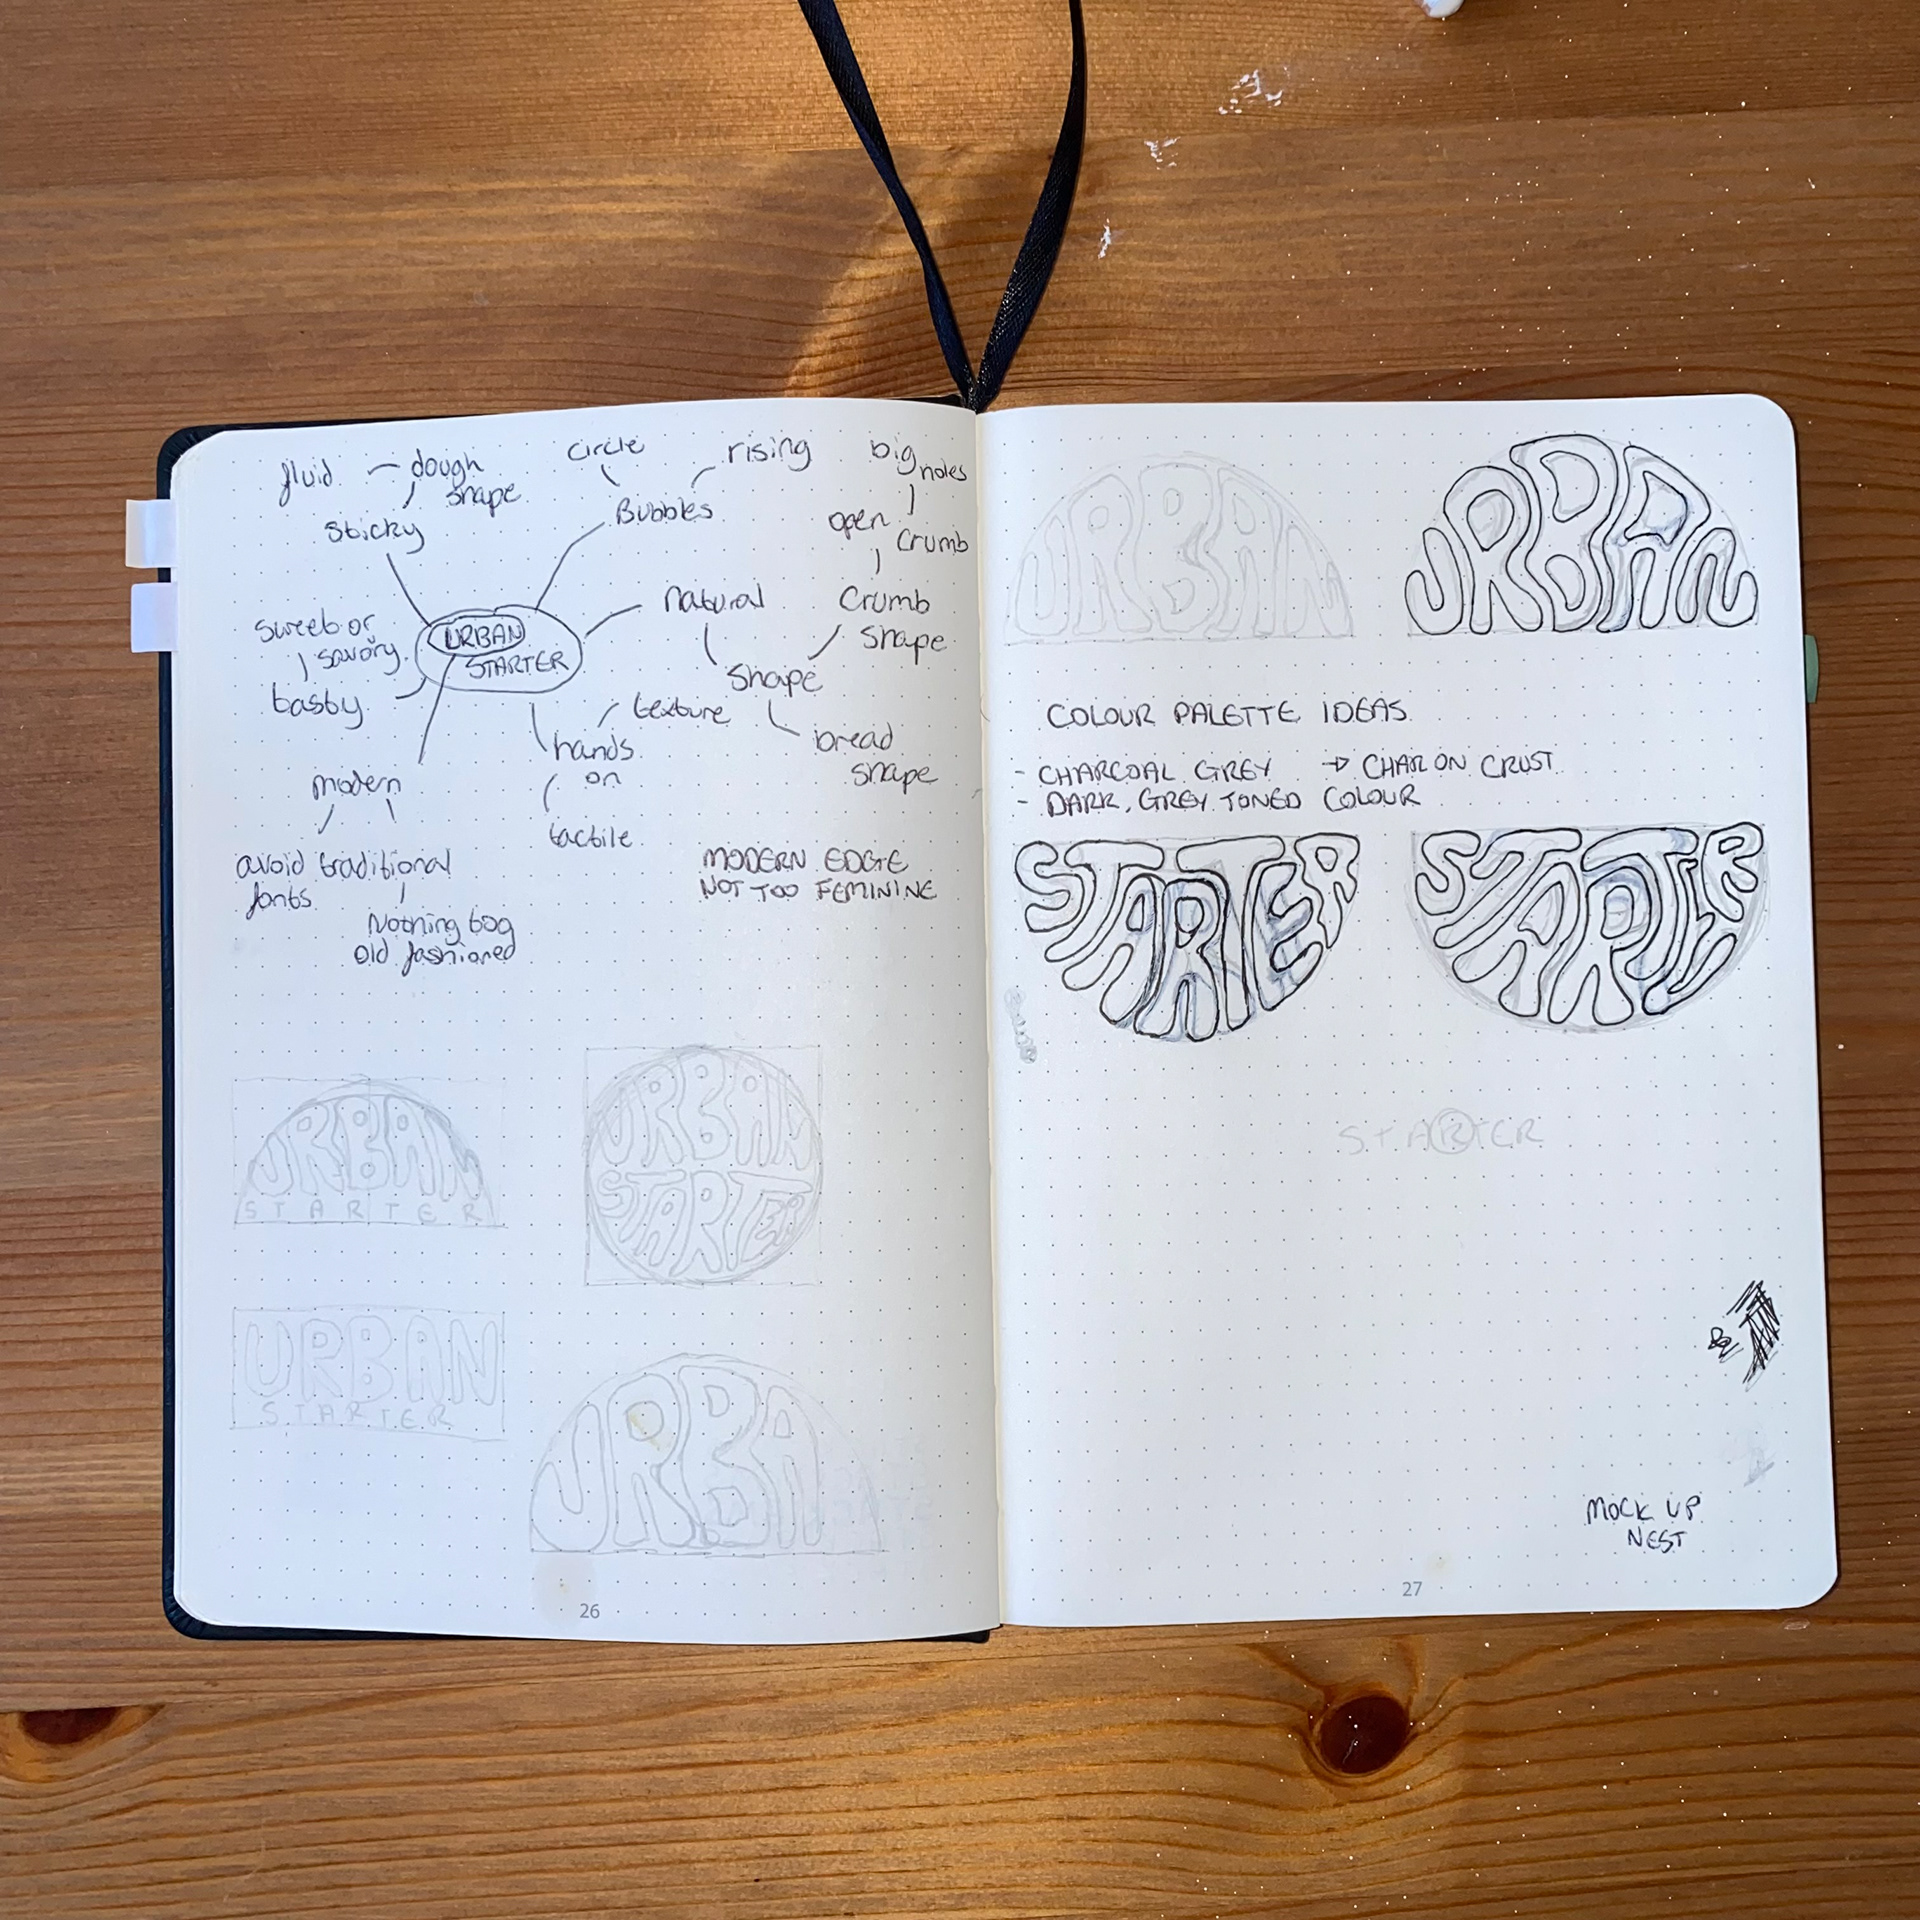 fluid
dough
shape
sticky
circle
rising
Bubbles
big
holes
open
crumb
natural
crumb
shape
shape
bread
shape
URBAN
STARTER
sweet or
savory
tasty
texture
hands
on
tactile
modern
avoid traditional
fonts
Nothing too
old fashioned
MODERN EDGE
NOT TOO FEMININE
URBAN
STARTER
URBAN
STARTER
URBAN
STARTER
URBA
26
URBAN
URBAN
COLOUR PALETTE IDEAS
- CHARCOAL GREY → CHAR ON CRUST
- DARK, GREY TONED COLOUR
STARTER
STARTER
STARTER
MOCK UP
NEST
27